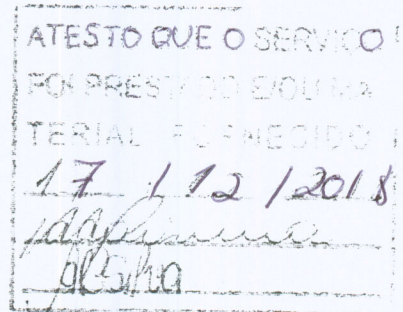 ATESTO QUE O SERVICO
FOI PRESTADO E/OU MA
TERIAL FORNECIDO
17 / 12 / 2018